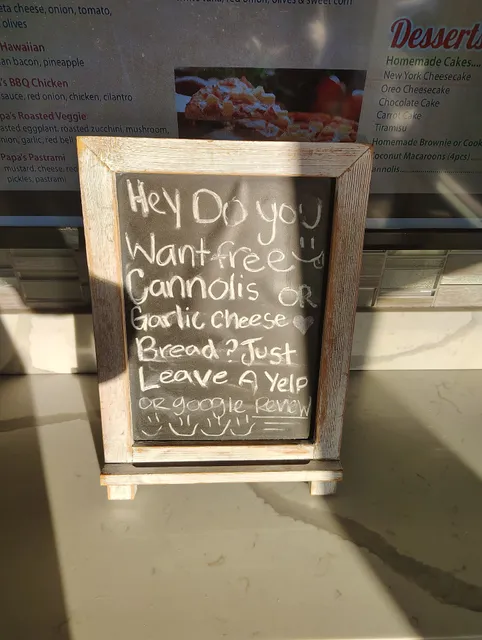 eta cheese, onion, tomato,
olives
Hawaiian
an bacon, pineapple
's BBQ Chicken
sauce, red onion, chicken, cilantro
pa's Roasted Veggie
asted eggplant, roasted zucchini, mushroom,
onion, garlic, red bell
Papa's Pastrami
mustard, cheese, red
pickles, pastrami
red onion, olives & sweet corn
Desserts
Homemade Cakes....
New York Cheesecake
Oreo Cheesecake
Chocolate Cake
Carrot Cake
Tiramisu
Homemade Brownie or Cook
oconut Macaroons (4pcs)....
annolis
Hey Do you
Want free
Cannolis OR
Garlic Cheese
Bread? Just
Leave A Yelp
or google Review